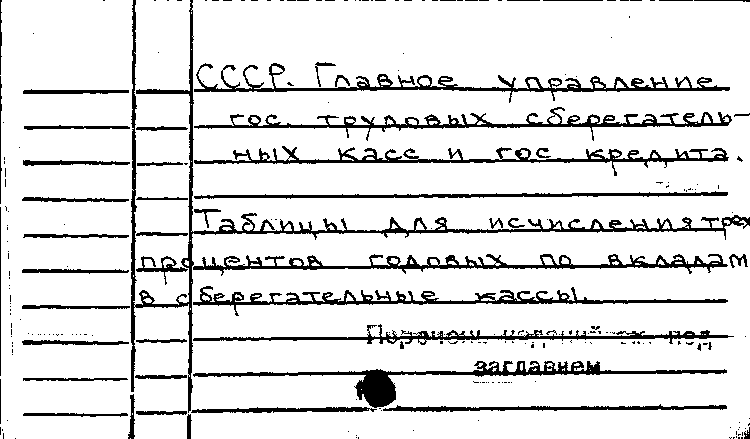 СССР. Главное управление
гос. трудовых сберегатель-
ных касс и гос кредита.
Таблицы для исчисления трех
процентов годовых по вкладам
в сберегательные кассы.
под
заглавием